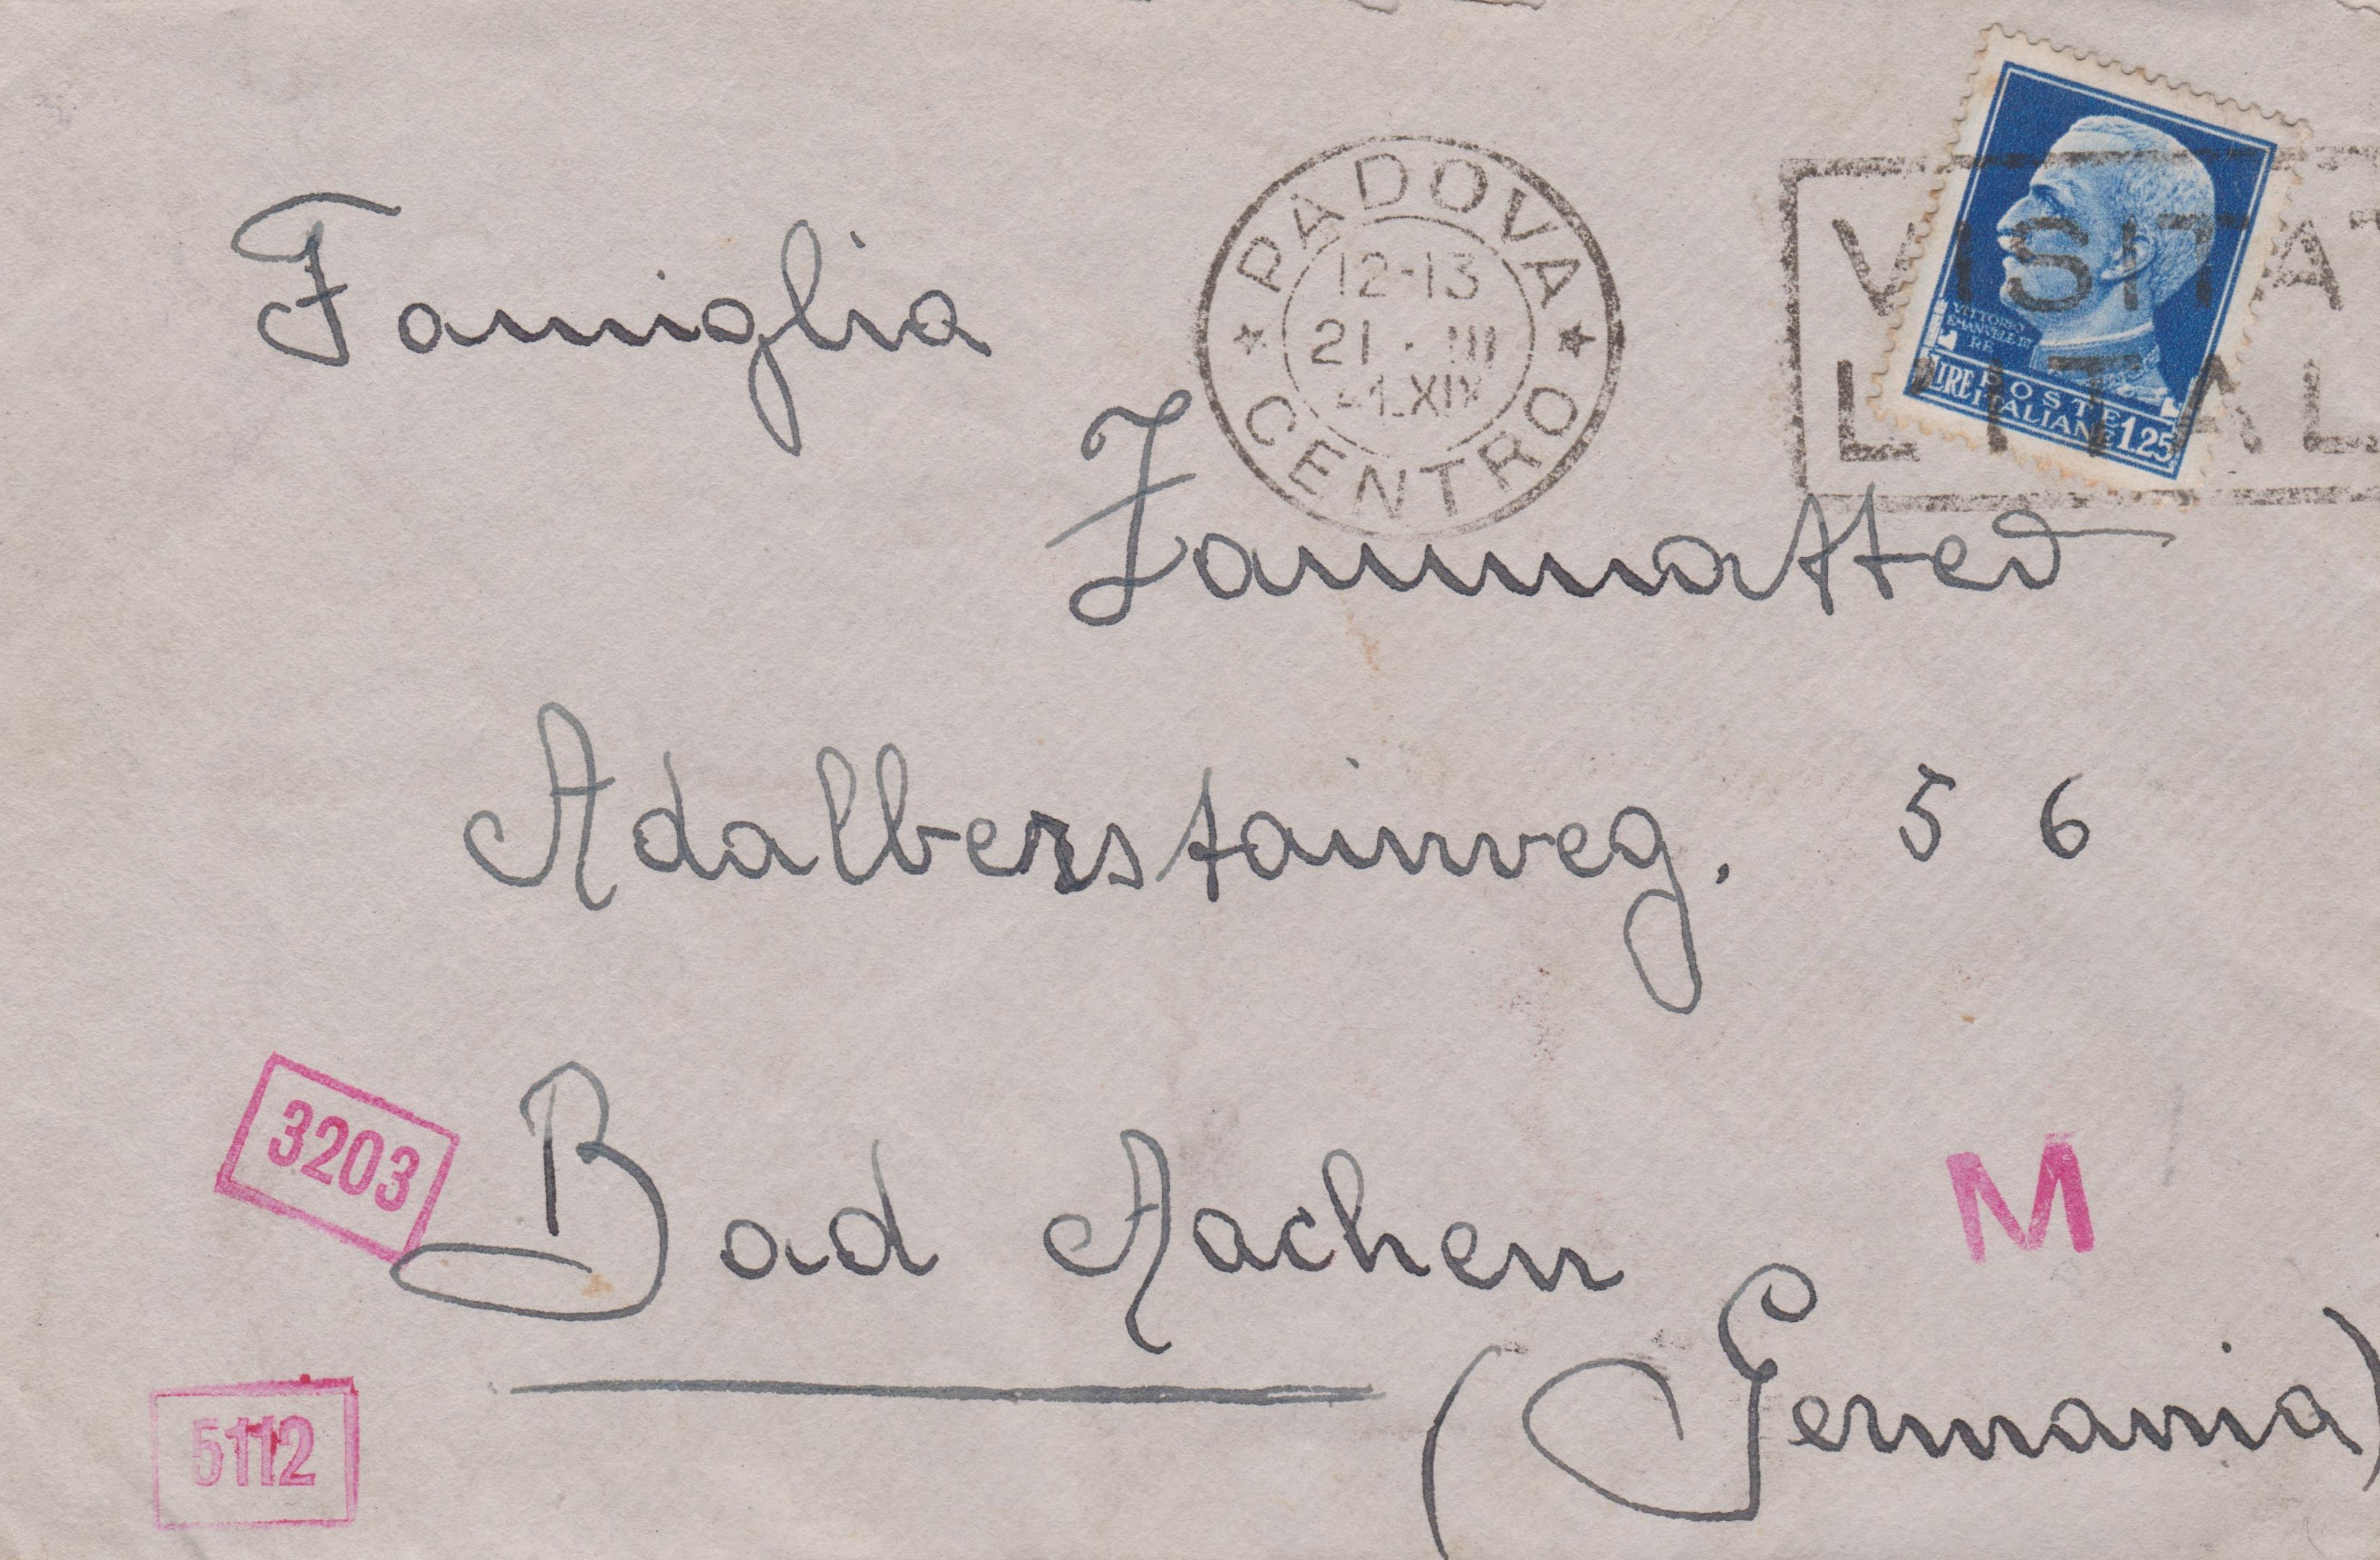 PADOVA
12-13
21 · III
41.XIX
CENTRO
VISITAT
L'ITAL
VITTORIO
EMANVELE III
RE
POSTE
ITALIANE
LIRE 1.25
Famiglia
Zammatteo
Adalberstainweg. 56
3203
Bad Aachen
M
(Germania)
5112